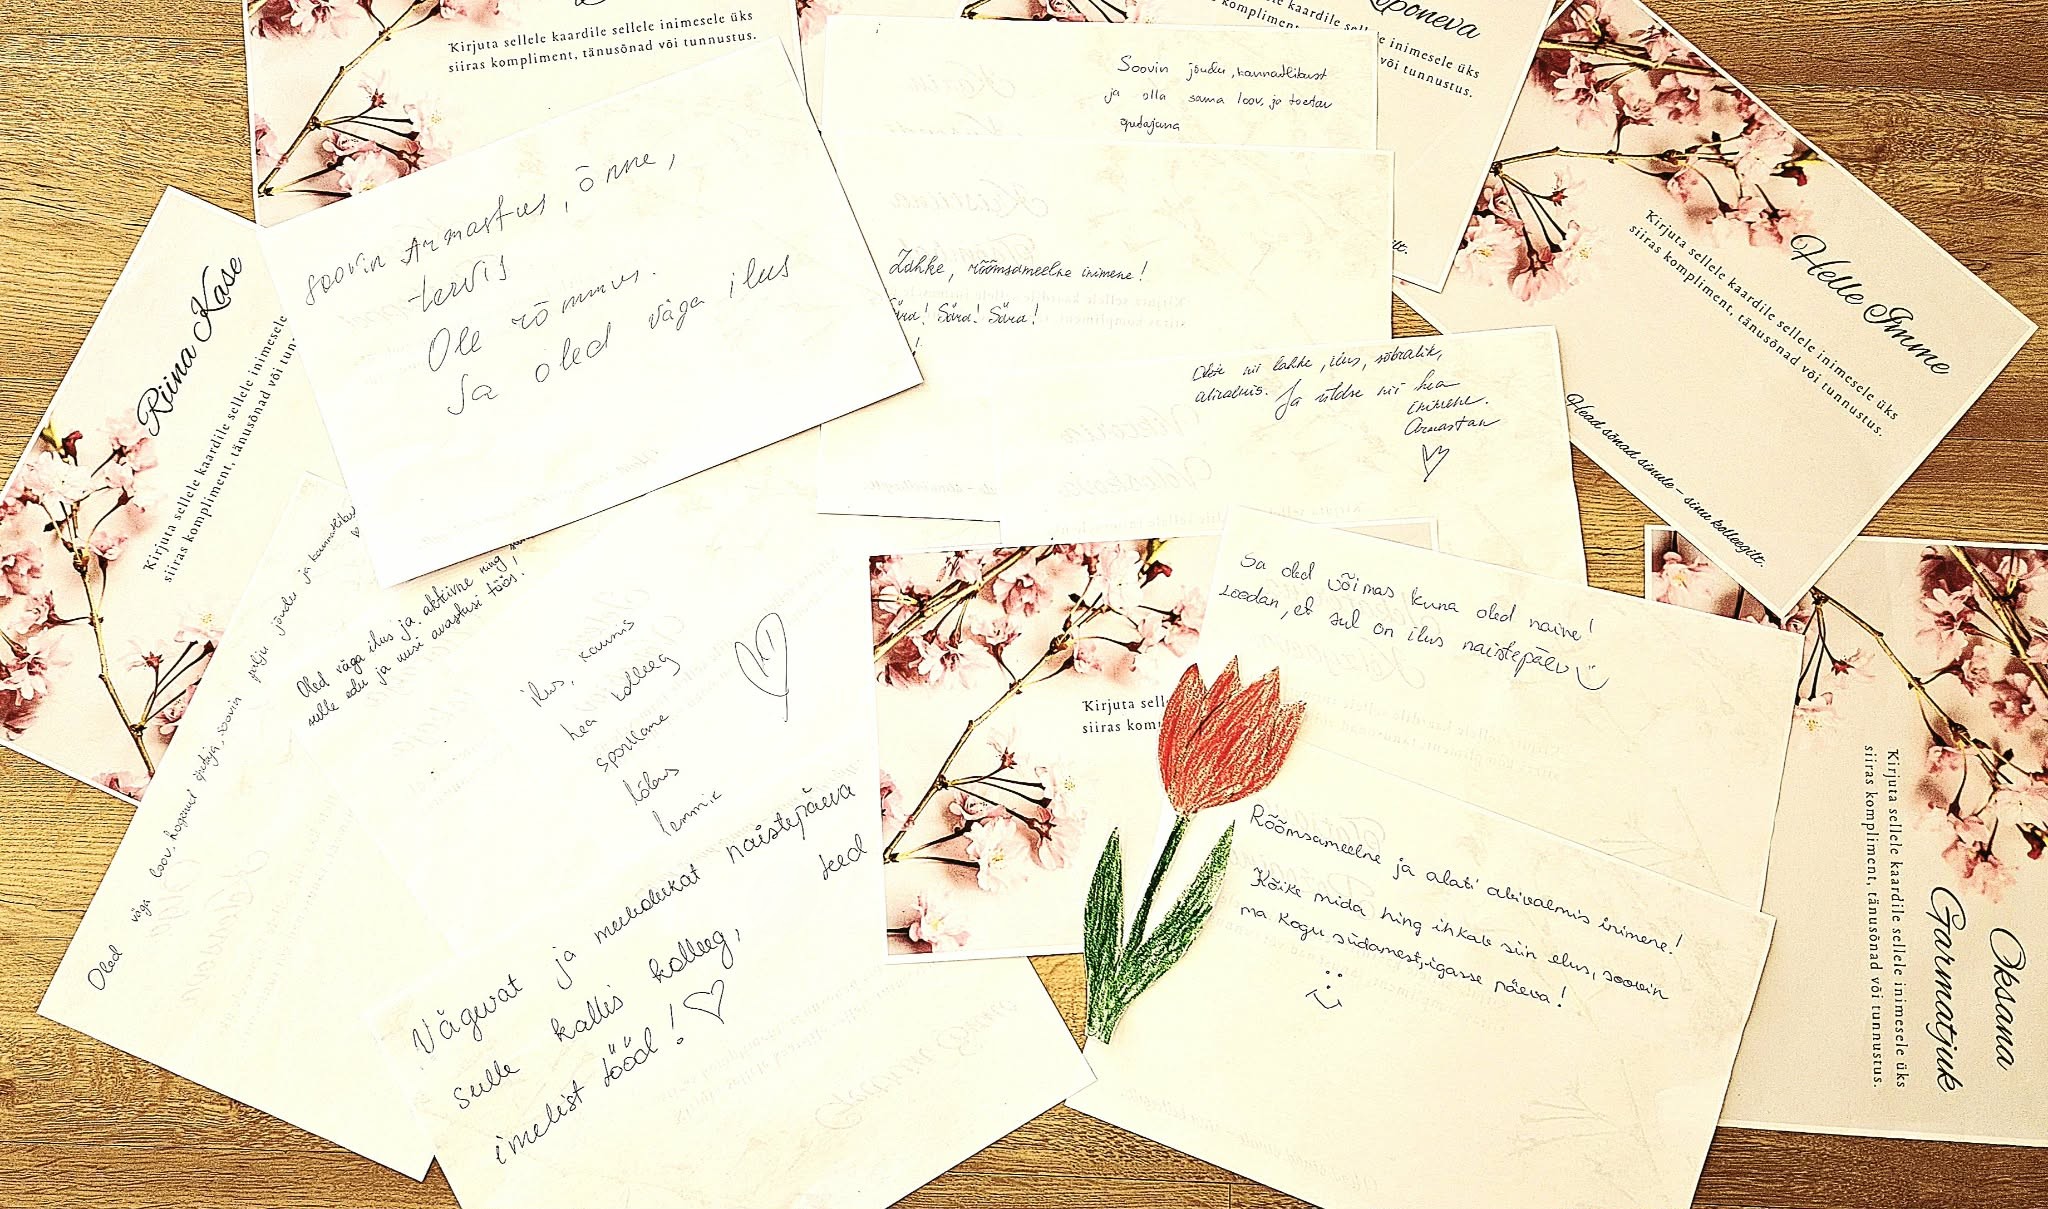 Kirjuta sellele kaardile sellele inimesele üks
siiras kompliment, tänusõnad või tunnustus.
Soovin jõudu, kannatlikust
ja olla sama loov, ja toetav
õpetajana
sellele inimesele üks
või tunnustus.
Helle Imme
Kirjuta sellele kaardile sellele inimesele üks
siiras kompliment, tänusõnad või tunnustus.
Head sõnad sinule – sinu kolleegilt.
Riina Kase
Kirjuta sellele kaardile sellele inimesele
siiras kompliment, tänusõnad või
soovin Armastus, õnne,
tervis
Ole rõmmus.
Sa oled väga ilus
Lahke, rõõmsameelne inimene!
Sära! Sära! Sära!
nii lahke, ilus, sõbralik,
abivalmis. Ja üldse nii hea
inimene.
Armastan
Oled väga loov, kogenud õpetaja, soovin palju jõudu ja kannatlikust
Oled väga ilus ja aktiivne ning
sulle edu ja uusi avastusi töös!
ilus, kaunis
hea kolleeg
sportlane
lõbus
lemmik
Vägevat ja meeldivat naistepäeva
sulle kallis kolleeg, teed
imelist tööd!
Kirjuta sell
siiras komp
Sa oled võimas kuna oled naine!
Loodan, et sul on ilus naistepäev
Rõõmsameelne ja alati abivalmis inimene!
Kõike mida hing ihkab siin elus, soovin
ma kogu südamest, igasse päeva!
Oksana
Garmatjuk
Kirjuta sellele kaardile sellele inimesele üks
siiras kompliment, tänusõnad või tunnustus.